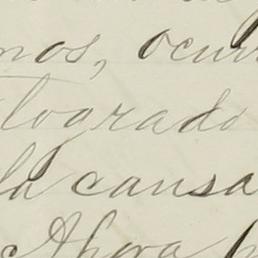 mos, ocur
logrado
la causa
Ahora